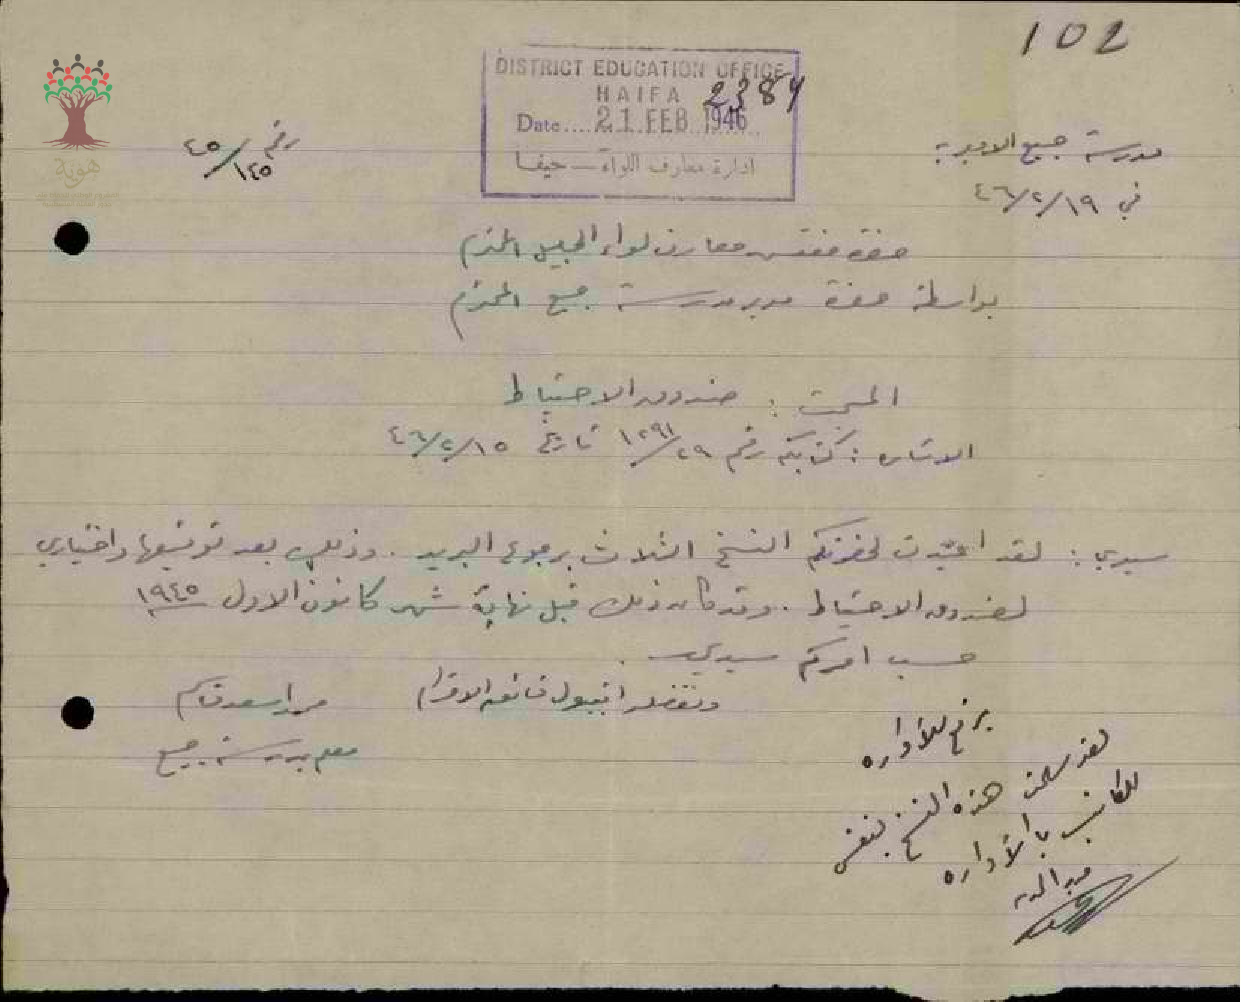 102
DISTRICT EDUCATION OFFICE
HAIFA 2384
Date.... 21 FEB 1946
ادارة معارف اللواء – حيفا
هوية
مدرسة جبع الاميرية
رقم ٤٥/١٤٥
في ١٩/٢/٤٦
حضرة مفتش معارف لواء الجليل المحترم
بواسطة حضرة مدير مدرسة جبع المحترم
المبحث : صندوق الاحتياط
الاشارة : كتابكم رقم ٢٩/١٢٩١ تاريخ ١٥/٢/٤٦
سيدي : لقد اعيدت لحضرتكم النسخ الثلاث برجوع البريد . وذلك بعد توقيعها واختياري
لصندوق الاحتياط . وقد كان ذلك قبل نهاية شهر كانون الاول ١٩٤٥
حسب امركم سيدي .
وتفضلوا بقبول فائق الاحترام
اسعد قاسم
معلم بمدرسة جبع
يرفع للأداره
لقد سلمت هذه النسخ بنفسي
للكاتب بالأداره